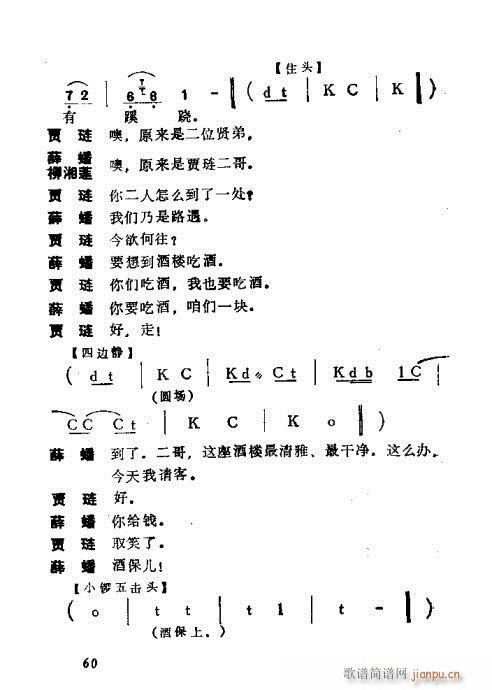 【住头】
7 2 | 6 6 1 - ‖ ( d t | K C | K ‖ )
有 蹊 跷。
贾 琏 噢，原来是二位贤弟。
薛 蟠
柳湘莲 噢，原来是贾琏二哥。
贾 琏 你二人怎么到了一处？
薛 蟠 我们乃是路遇。
贾 琏 今欲何往？
薛 蟠 要想到酒楼吃酒。
贾 琏 你们吃酒，我也要吃酒。
薛 蟠 你要吃酒，咱们一块。
贾 琏 好，走！
【四边静】
( d t | K C | K d C t | K d b 1 C |
(圆场)
C C C t | K C | K o ‖ )
薛 蟠 到了。二哥，这座酒楼最清雅、最干净。这么办，
今天我请客。
贾 琏 好。
薛 蟠 你给钱。
贾 琏 取笑了。
薛 蟠 酒保儿！
【小锣五击头】
( o | t t | t 1 | t - ‖ )
(酒保上。)
60
歌谱简谱网
www.jianpu.cn